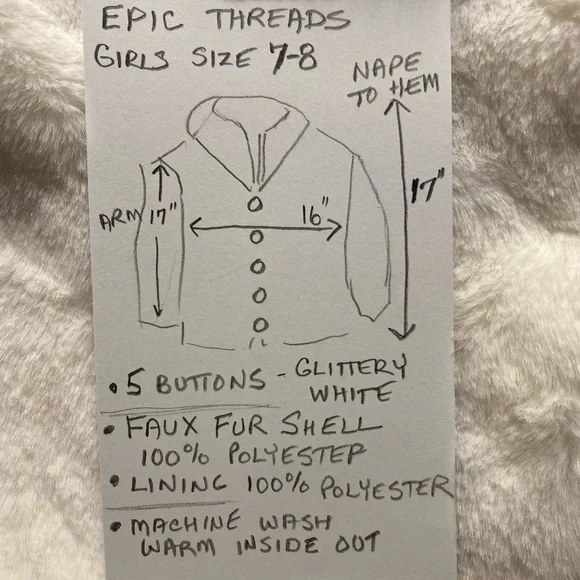 EPIC THREADS
GIRLS SIZE 7-8
NAPE
TO HEM
ARM 17"
16"
17"
• 5 BUTTONS - GLITTERY
WHITE
• FAUX FUR SHELL
100% POLYESTER
• LINING 100% POLYESTER
• MACHINE WASH
WARM INSIDE OUT